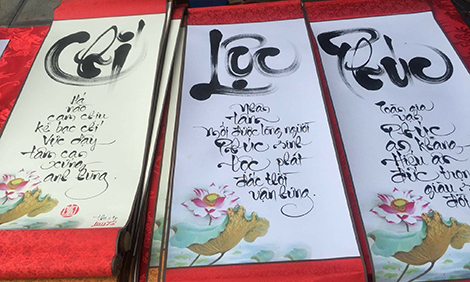 Chí
Há
nào
cam chịu
kẻ bạc chí
Vực dậy
tâm can
anh hùng.
Lộc
Nhân
tâm
được lòng người
Phúc sinh
Lộc phát
đắc thời
vận hưng.
Phúc
Toàn gia
vạn
Phúc
an khang
Hiếu ân
đức trọng
giàu
đời